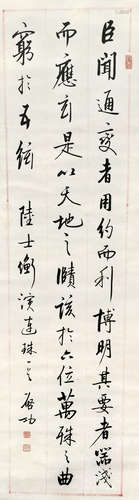 臣聞通變者用約而利博明其要者器淺
而應玄是以天地之賾該於六位萬殊之曲
窮於五絃 陸士衡演連珠 啟功